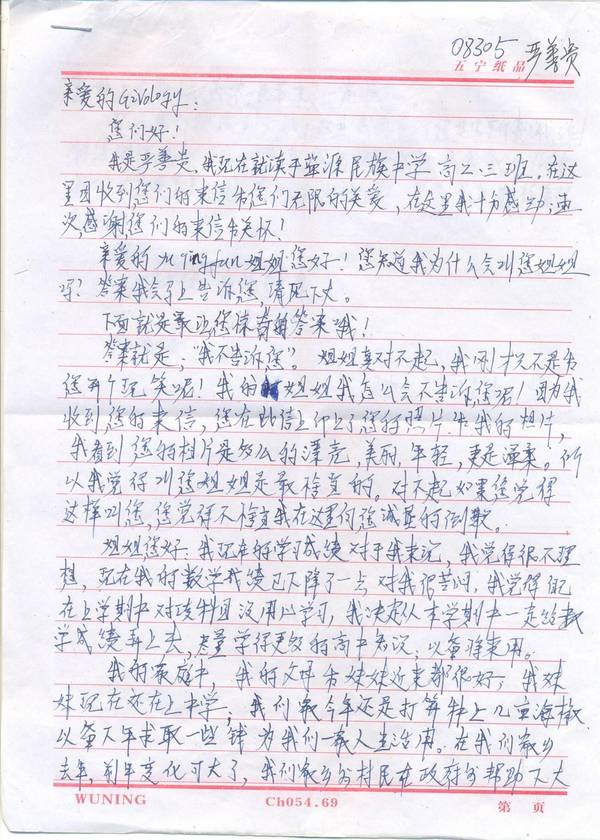 08305 严善贵
五宁纸品
亲爱的Givology:
您们好!
我是严善贵,我现在就读于盐源民族中学高二.三班。在这
里因收到您们的来信和您们无限的关爱,在这里我十分感动;再
次感谢您们的来信和关怀!
亲爱的 姐姐您好!您知道我为什么会叫您姐姐
吗?答案我会马上告诉您,请见下文。
下面就是最让您惊奇的答案哦!
答案就是:“我不告诉您”。姐姐真对不起,我刚才只不是和
您开个玩笑呢!我的 姐姐我怎么会不告诉您呢!因为我
收到您的来信,您在此信上印了您的照片.和我的相片,
我看到您的相片是多么的漂亮,美丽,年轻,更是温柔。所
以我觉得叫您姐姐是最合适的。对不起如果您觉得
这样叫您,您觉得不合适我在这里向您诚恳的倒歉。
姐姐您好.我现在的学习成绩对于我来说,我觉得很不理
想,现在我的数学成绩已下降了一点.对我很苦闷,我觉得
在上学期中对该科目没用心学习,我决定从本学期中一定给数
学成绩弄上去,尽量学得更多的高中知识,以备将来用。
我的家庭中,我的父母和妹妹近来都很好,我妹
妹现在还在上中学;我们家今年还是打算种上几亩海椒
以备下年求取一些钱为我们一家人生活用。在我们家乡
去年,前年变化可大了,我们家乡的村民在政府的帮助下大
WUNING Ch054.69 第 页